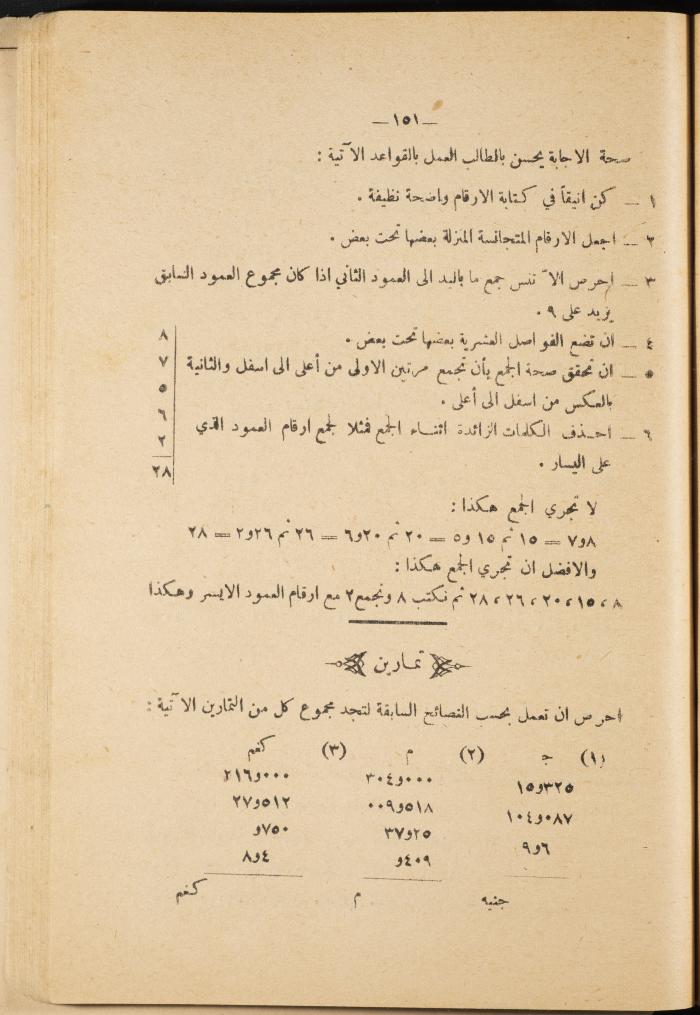 — ١٥١ —
صحة الاجابة يحسن بالطالب العمل بالقواعد الآتية :
١ — كن انيقاً في كتابة الارقام واضحة نظيفة .
٢ — اجعل الارقام المتجانسة المنزلة بعضها تحت بعض .
٣ — احرص الاّ تنس جمع ما باليد الى العمود الثاني اذا كان مجموع العمود السابق
يزيد على ٩ .
٤ — ان تضع الفواصل العشرية بعضها تحت بعض .
٥ — ان تحقق صحة الجمع بأن تجمع مرتين الاولى من أعلى الى اسفل والثانية
بالعكس من اسفل الى أعلى .
٦ — احـذف الكلمات الزائدة اثنـاء الجمع فمثلا لجمع ارقام العمود الذي
على اليسار .
٨
٧
٥
٦
٢
٢٨
لا تجري الجمع هكذا :
٨و٧ = ١٥ ثم ١٥ و٥ = ٢٠ ثم ٢٠و٦ = ٢٦ ثم ٢٦و٢ = ٢٨
والافضل ان تجري الجمع هكذا :
٨ ، ١٥ ، ٢٠ ، ٢٦ ، ٢٨ ثم نكتب ٨ ونجمع ٢ مع ارقام العمود الايسر وهكذا
تمارين
احرص ان تعمل بحسب النصائح السابقة لتجد مجموع كل من التمارين الآتية :
(١) جـ (٢) م (٣) كغم
٣٢٥و١٥ ٠٠٠و٣٠٤ ٠٠٠و٢١٦
٠٨٧و١٠٤ ٥١٨و٠٠٩ ٥١٢و٢٧
٦و٩ ٢٥و٣٧ ٧٥٠و
٤٠٩و ٤و٨
جنيه م كغم